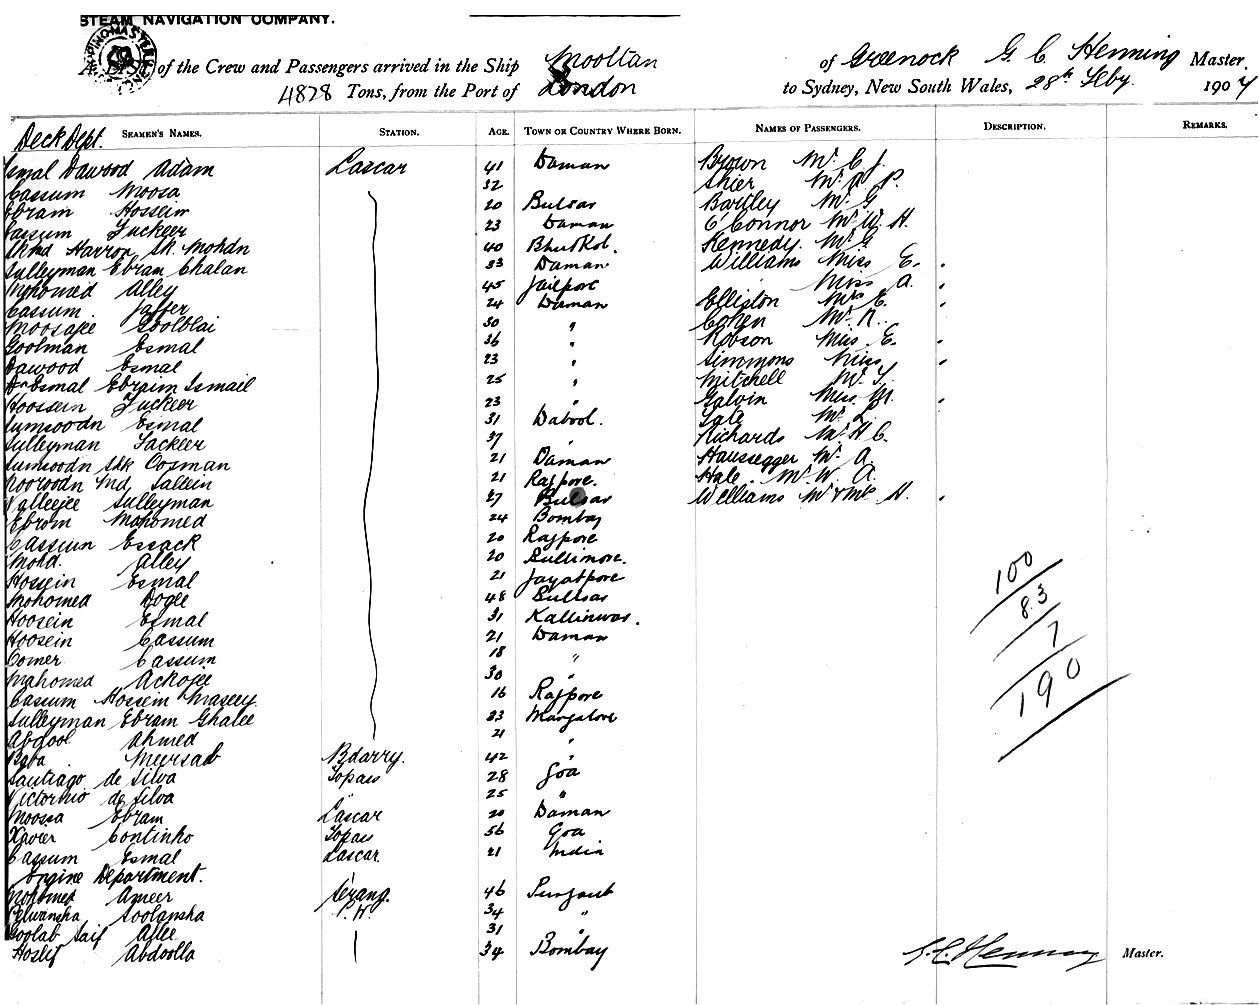 STEAM NAVIGATION COMPANY.
A LIST of the Crew and Passengers arrived in the Ship Mooltan of Greenock G. C. Henning Master,
4828 Tons, from the Port of London to Sydney, New South Wales, 28th Feby. 1907
Deck Dept.
SEAMEN'S NAMES. STATION. AGE. TOWN OR COUNTRY WHERE BORN. NAMES OF PASSENGERS. DESCRIPTION. REMARKS.
Esmal Dawood Adam Lascar 41 Daman Brown Mr. C. J.
Cassum Moosa 32 Shier Mr. P.
Ebram Hossein 20 Bulsar Bartley Mr. G
Cassum Fuckeer 23 Daman O'Connor Mr. W. H.
Sk. Mohdn 40 Kennedy. Mr. G
Sulleyman Ebram Chalan 33 Daman Williams Miss E.
Mohomed Alley 45 Miss A.
Cassum. Jaffer 24 Daman Elliston Mrs. E.
30 " Cohen Mr. R.
Goolman Esmal 36 " Robson Miss E.
Dawood Esmal 23 " Simmons Miss
Esmal Ebraim Ismail 25 " Mitchell Mr.
Hoossein Fuckeer 23 " Galvin Miss. M.
Esmal 31 Dabool. Tate Mr. L.
Sulleyman Fackeer 37 " Richards Mr. H. C.
Shk Oosman 21 Daman Haussegger Mr. A.
Md Sallein 21 Rajpore. Hale. Mr. W. A.
Valleejee Sulleyman 27 Bulsar Williams Mr & Mrs H.
Ebrom Mahomed 24 Bombay
Cassum Essack 20 Rajpore
Mohd. Alley 20 Bullimore.
Hossein Esmal 21 Jayatpore
Mohomed 48 Bulsar
Hoosein Esmal 31 Kallinwar.
Hoosein Cassum 21 Daman
Oomer Cassum 18 "
Mahomed Ackojee 30 "
Cassum Hossein 16 Rajpore
Sulleyman Ebram Ghalee 23 Mangalore
Abdool Ahmed 21 "
Baba Meersab Bdarry. 42 "
Santiago de Silva Topass 28 Goa
Victorino de Silva " 25 "
Moosa Ebram Lascar 20 Daman
Xavier Continho Topass 56 Goa
Cassum Esmal Lascar 21 India
Engine Department.
Mohomed Ameer Serang. 46 Punjaub
34 "
Goolab Saif Allee 31 "
Abdoolla 34 Bombay
100
83
7
190
G. C. Henning Master.